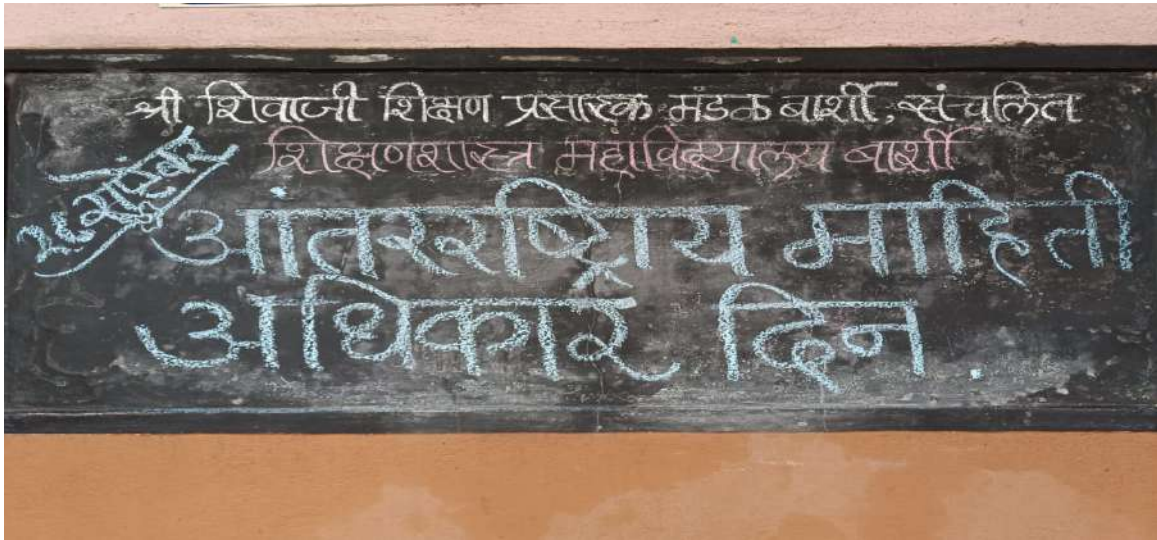 श्री शिवाजी शिक्षण प्रसारक मंडळ बार्शी, संचलित
शिक्षणशास्त्र महाविद्यालय बार्शी
२८ सप्टेंबर
आंतरराष्ट्रिय माहिती
अधिकार दिन.